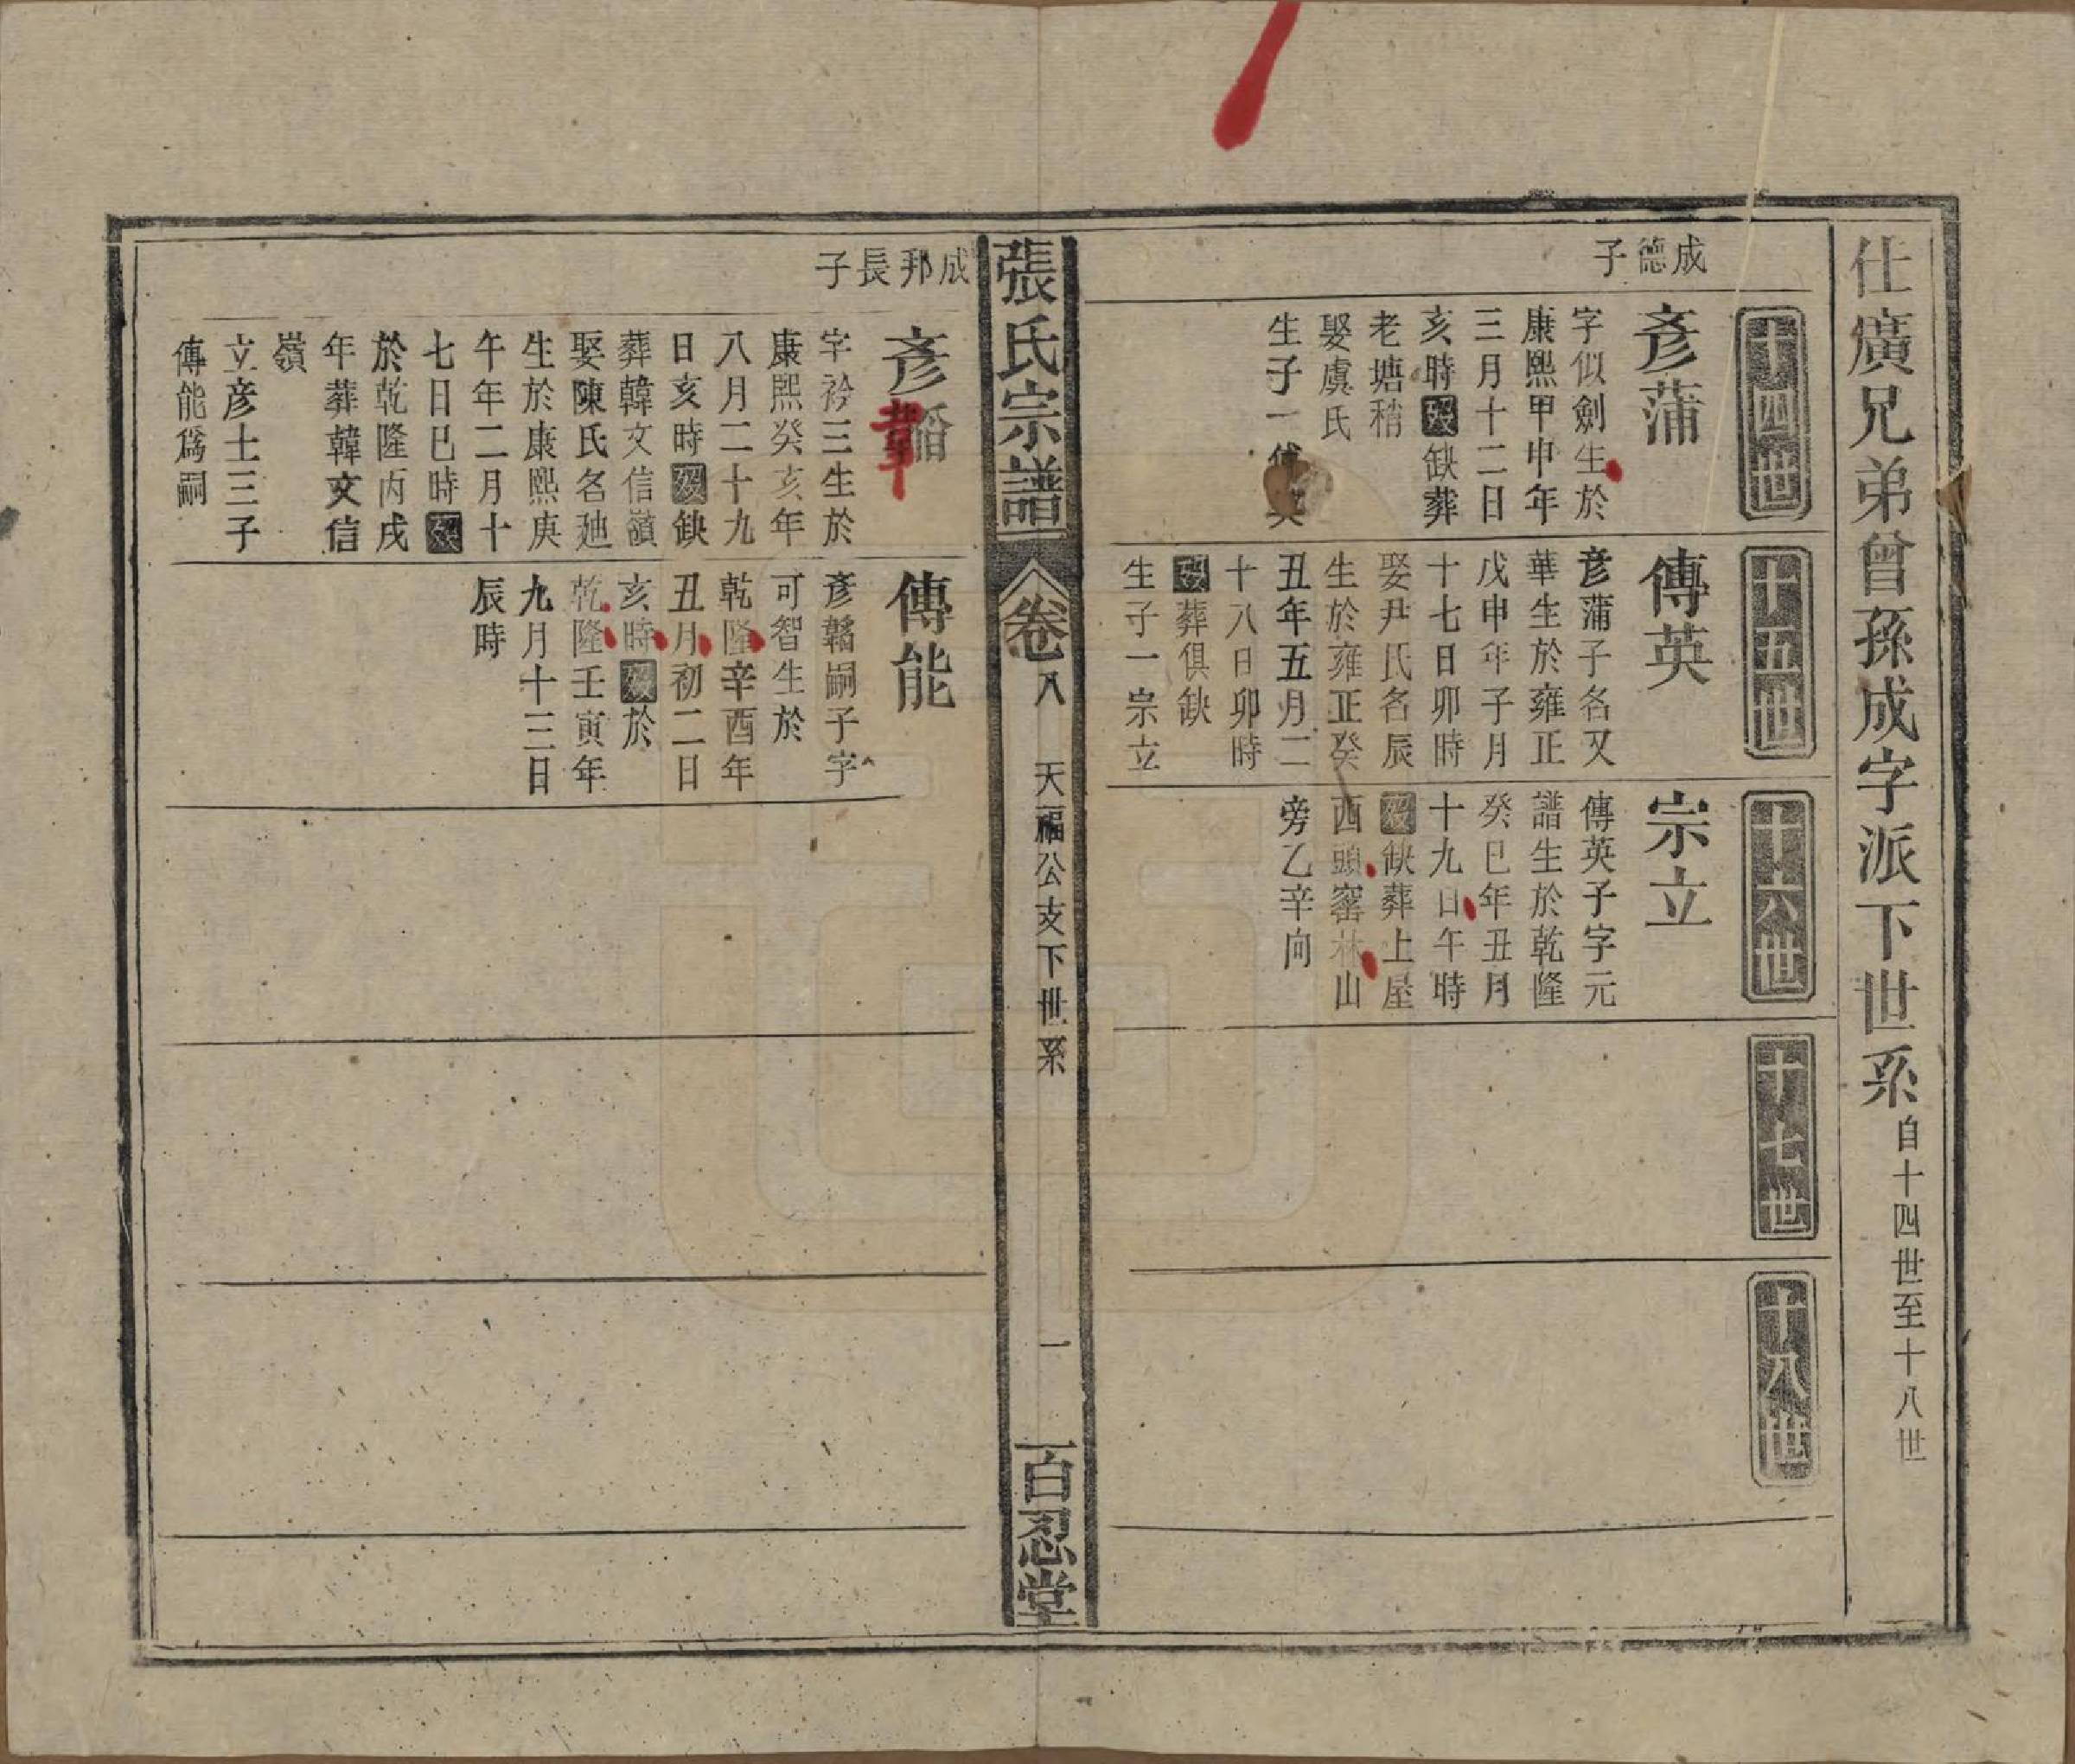 仕廣兄弟曾孫成字派下世系自十四世至十八世
十四世
成德子
彥蒲
字似劍生於
康熙甲申年
三月十二日
亥時歿缺葬
老塘稍
娶虞氏
生子一傅英
十五世
傅英
彥蒲子名又
華生於雍正
戊申年子月
十七日卯時
娶尹氏名辰
生於雍正癸
丑年五月二
十八日卯時
歿葬俱缺
生子一宗立
十六世
宗立
傅英子字元
譜生於乾隆
癸巳年丑月
十九日午時
歿缺葬上屋
西頭窰林山
旁乙辛向
十七世
十八世
張氏宗譜
卷八
天福公支下世系
一
百忍堂
成邦長子
彥韜
字衿三生於
康熙癸亥年
八月二十九
日亥時歿缺
葬韓文信嶺
娶陳氏名廸
生於康熙庚
午年二月十
七日巳時歿
於乾隆丙戌
年葬韓文信
嶺
立彥士三子
傅能爲嗣
傅能
彥韜嗣子字
可智生於
乾隆辛酉年
丑月初二日
亥時歿於
乾隆壬寅年
九月十三日
辰時